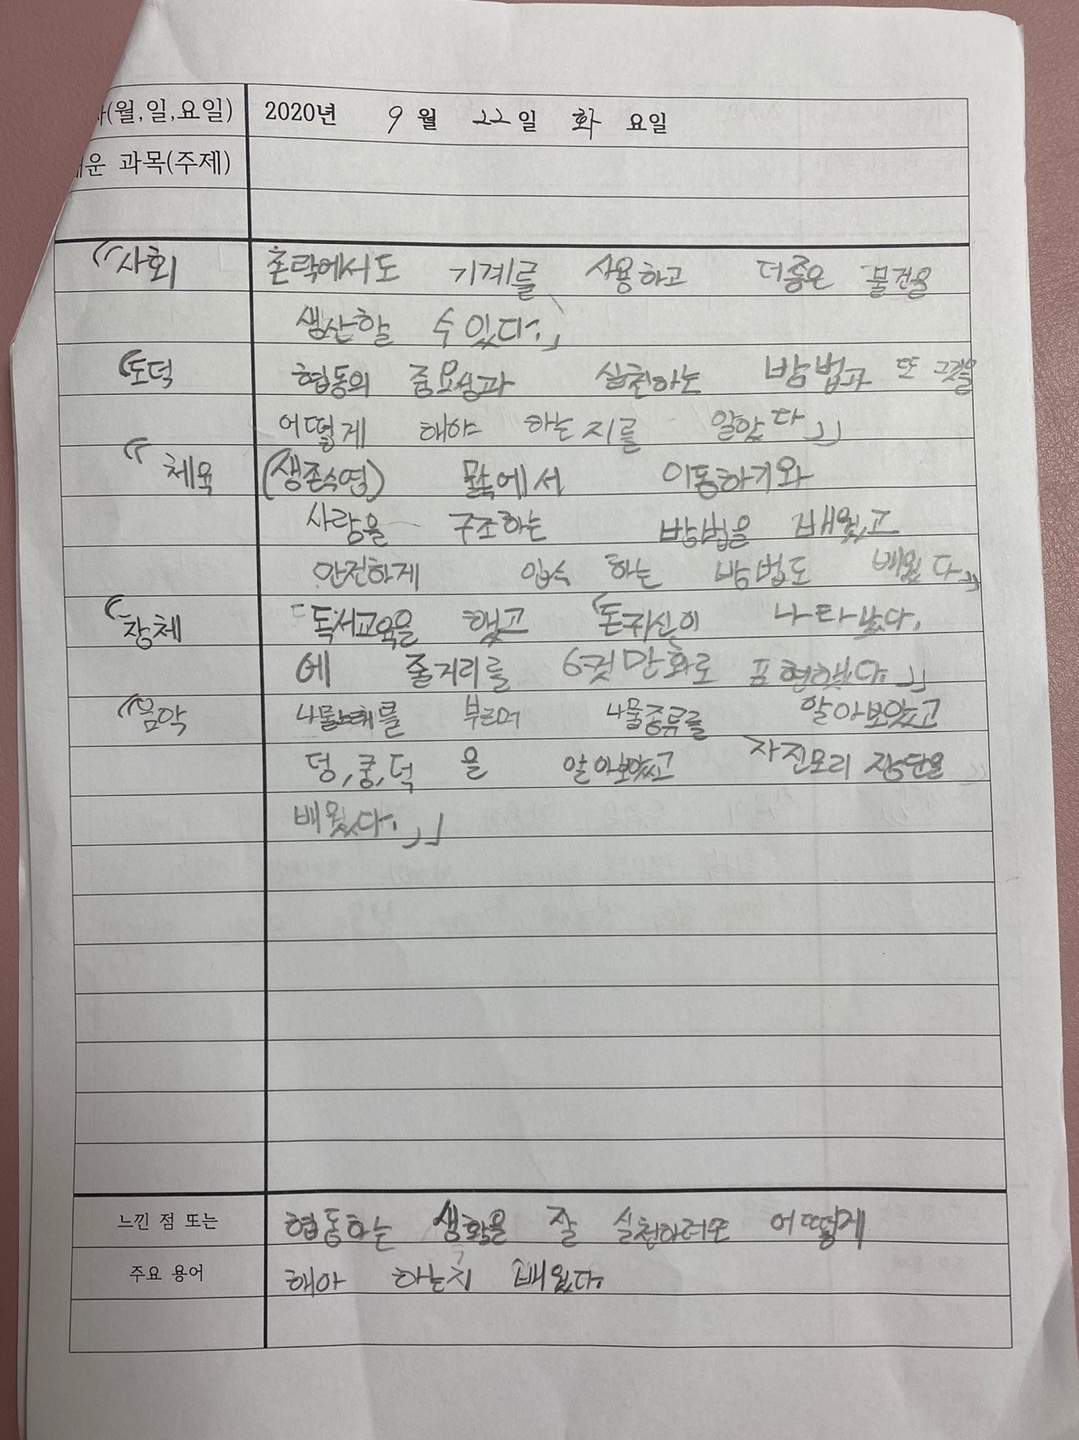 (월,일,요일) 2020년 9월 22일 화 요일
운 과목(주제)
사회 촌락에서도 기계를 사용하고 더좋은 물건을
생산할 수 있다.」
도덕 협동의 중요성과 실천하는 방법과 또 그것을
어떻게 해야 하는지를 알았다」」
체육 (생존수영) 물속에서 이동하기와
사람을 구조하는 방법을 배웠고
안전하게 입수 하는 방법도 배웠다」」
창체 독서교육을 했고 돈귀신이 나타났다,
에 줄거리를 6컷만화로 표현했다.」」
음악 나물노래를 부르며 나물종류를 알아보았고
덩,쿵,덕 을 알아보았고 자진모리 장단을
배웠다.」」
느낀 점 또는 협동하는 생활을 잘 실천하려면 어떻게
주요 용어 해야 하는지 배웠다.